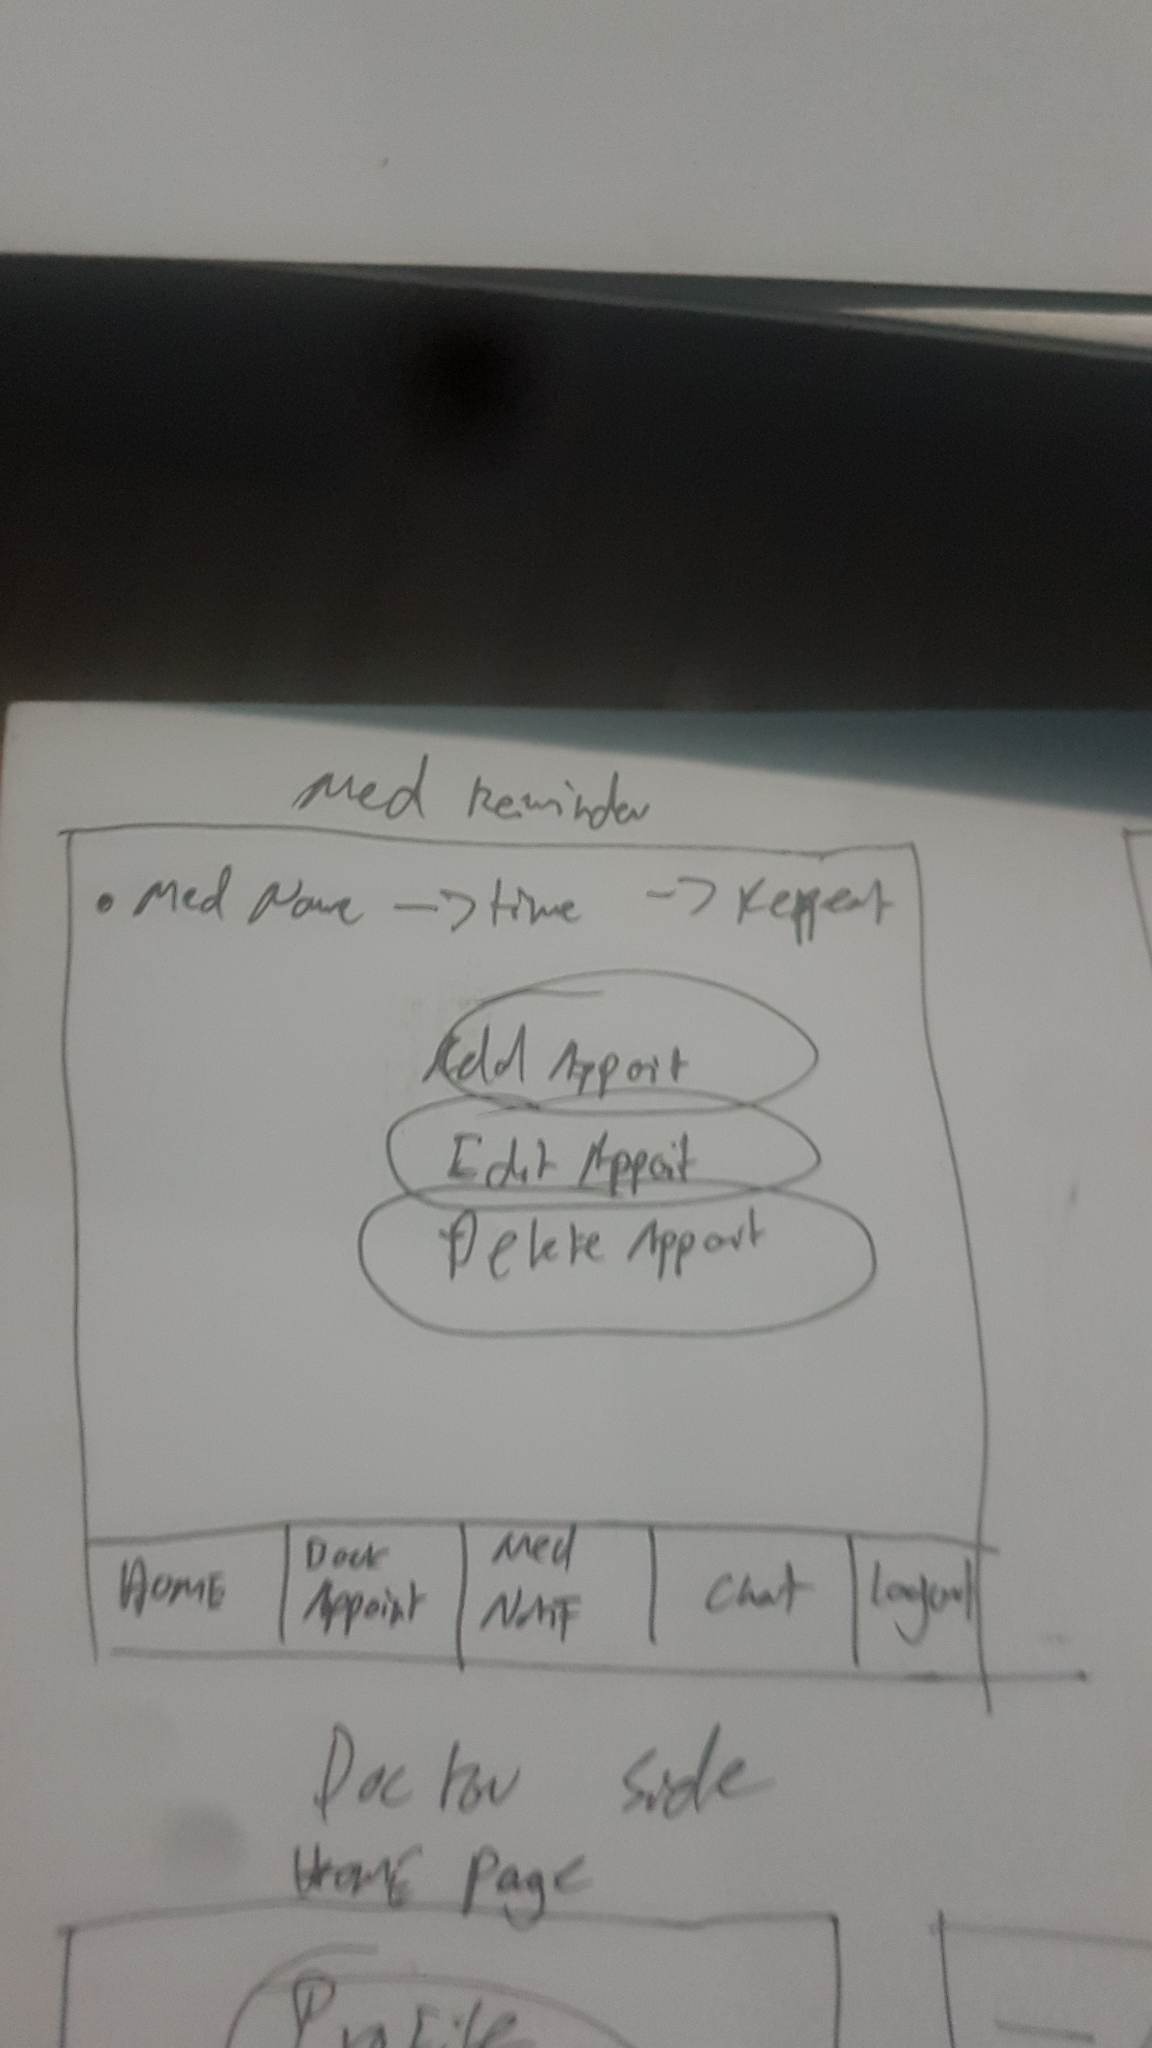 Med Reminder
• Med Name -> time -> Reppeat
Add Appoit
Edit Appoit
Delete Appoit
HOME
Dock
Appoint
Med
Chat
Logout
Doctor side
HOME Page
Profile